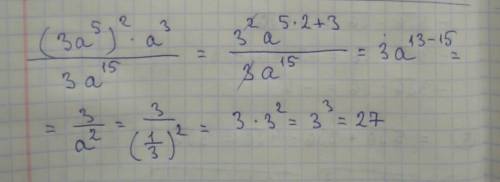 (3a⁵)² · a³ / 3a¹⁵ = 3² a^(5·2+3) / 3a¹⁵ = 3a^(13-15) =
= 3/a² = 3/(1/3)² = 3 · 3² = 3³ = 27